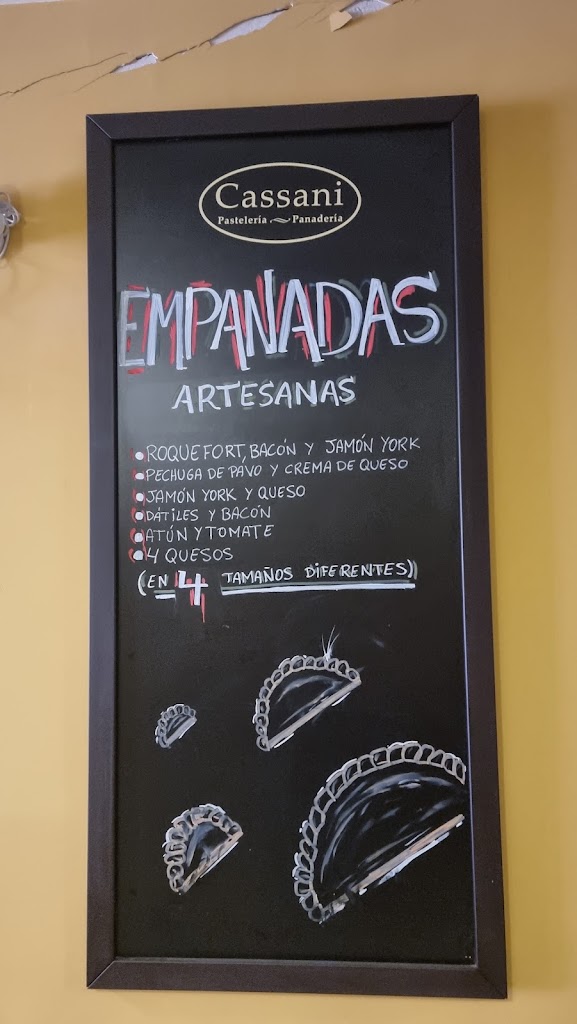 Cassani
Pastelería Panadería
EMPANADAS
ARTESANAS
• ROQUEFORT, BACÓN Y JAMÓN YORK
• PECHUGA DE PAVO Y CREMA DE QUESO
• JAMÓN YORK Y QUESO
• DÁTILES Y BACÓN
• ATÚN Y TOMATE
• 4 QUESOS
(EN 4 TAMAÑOS DIFERENTES)